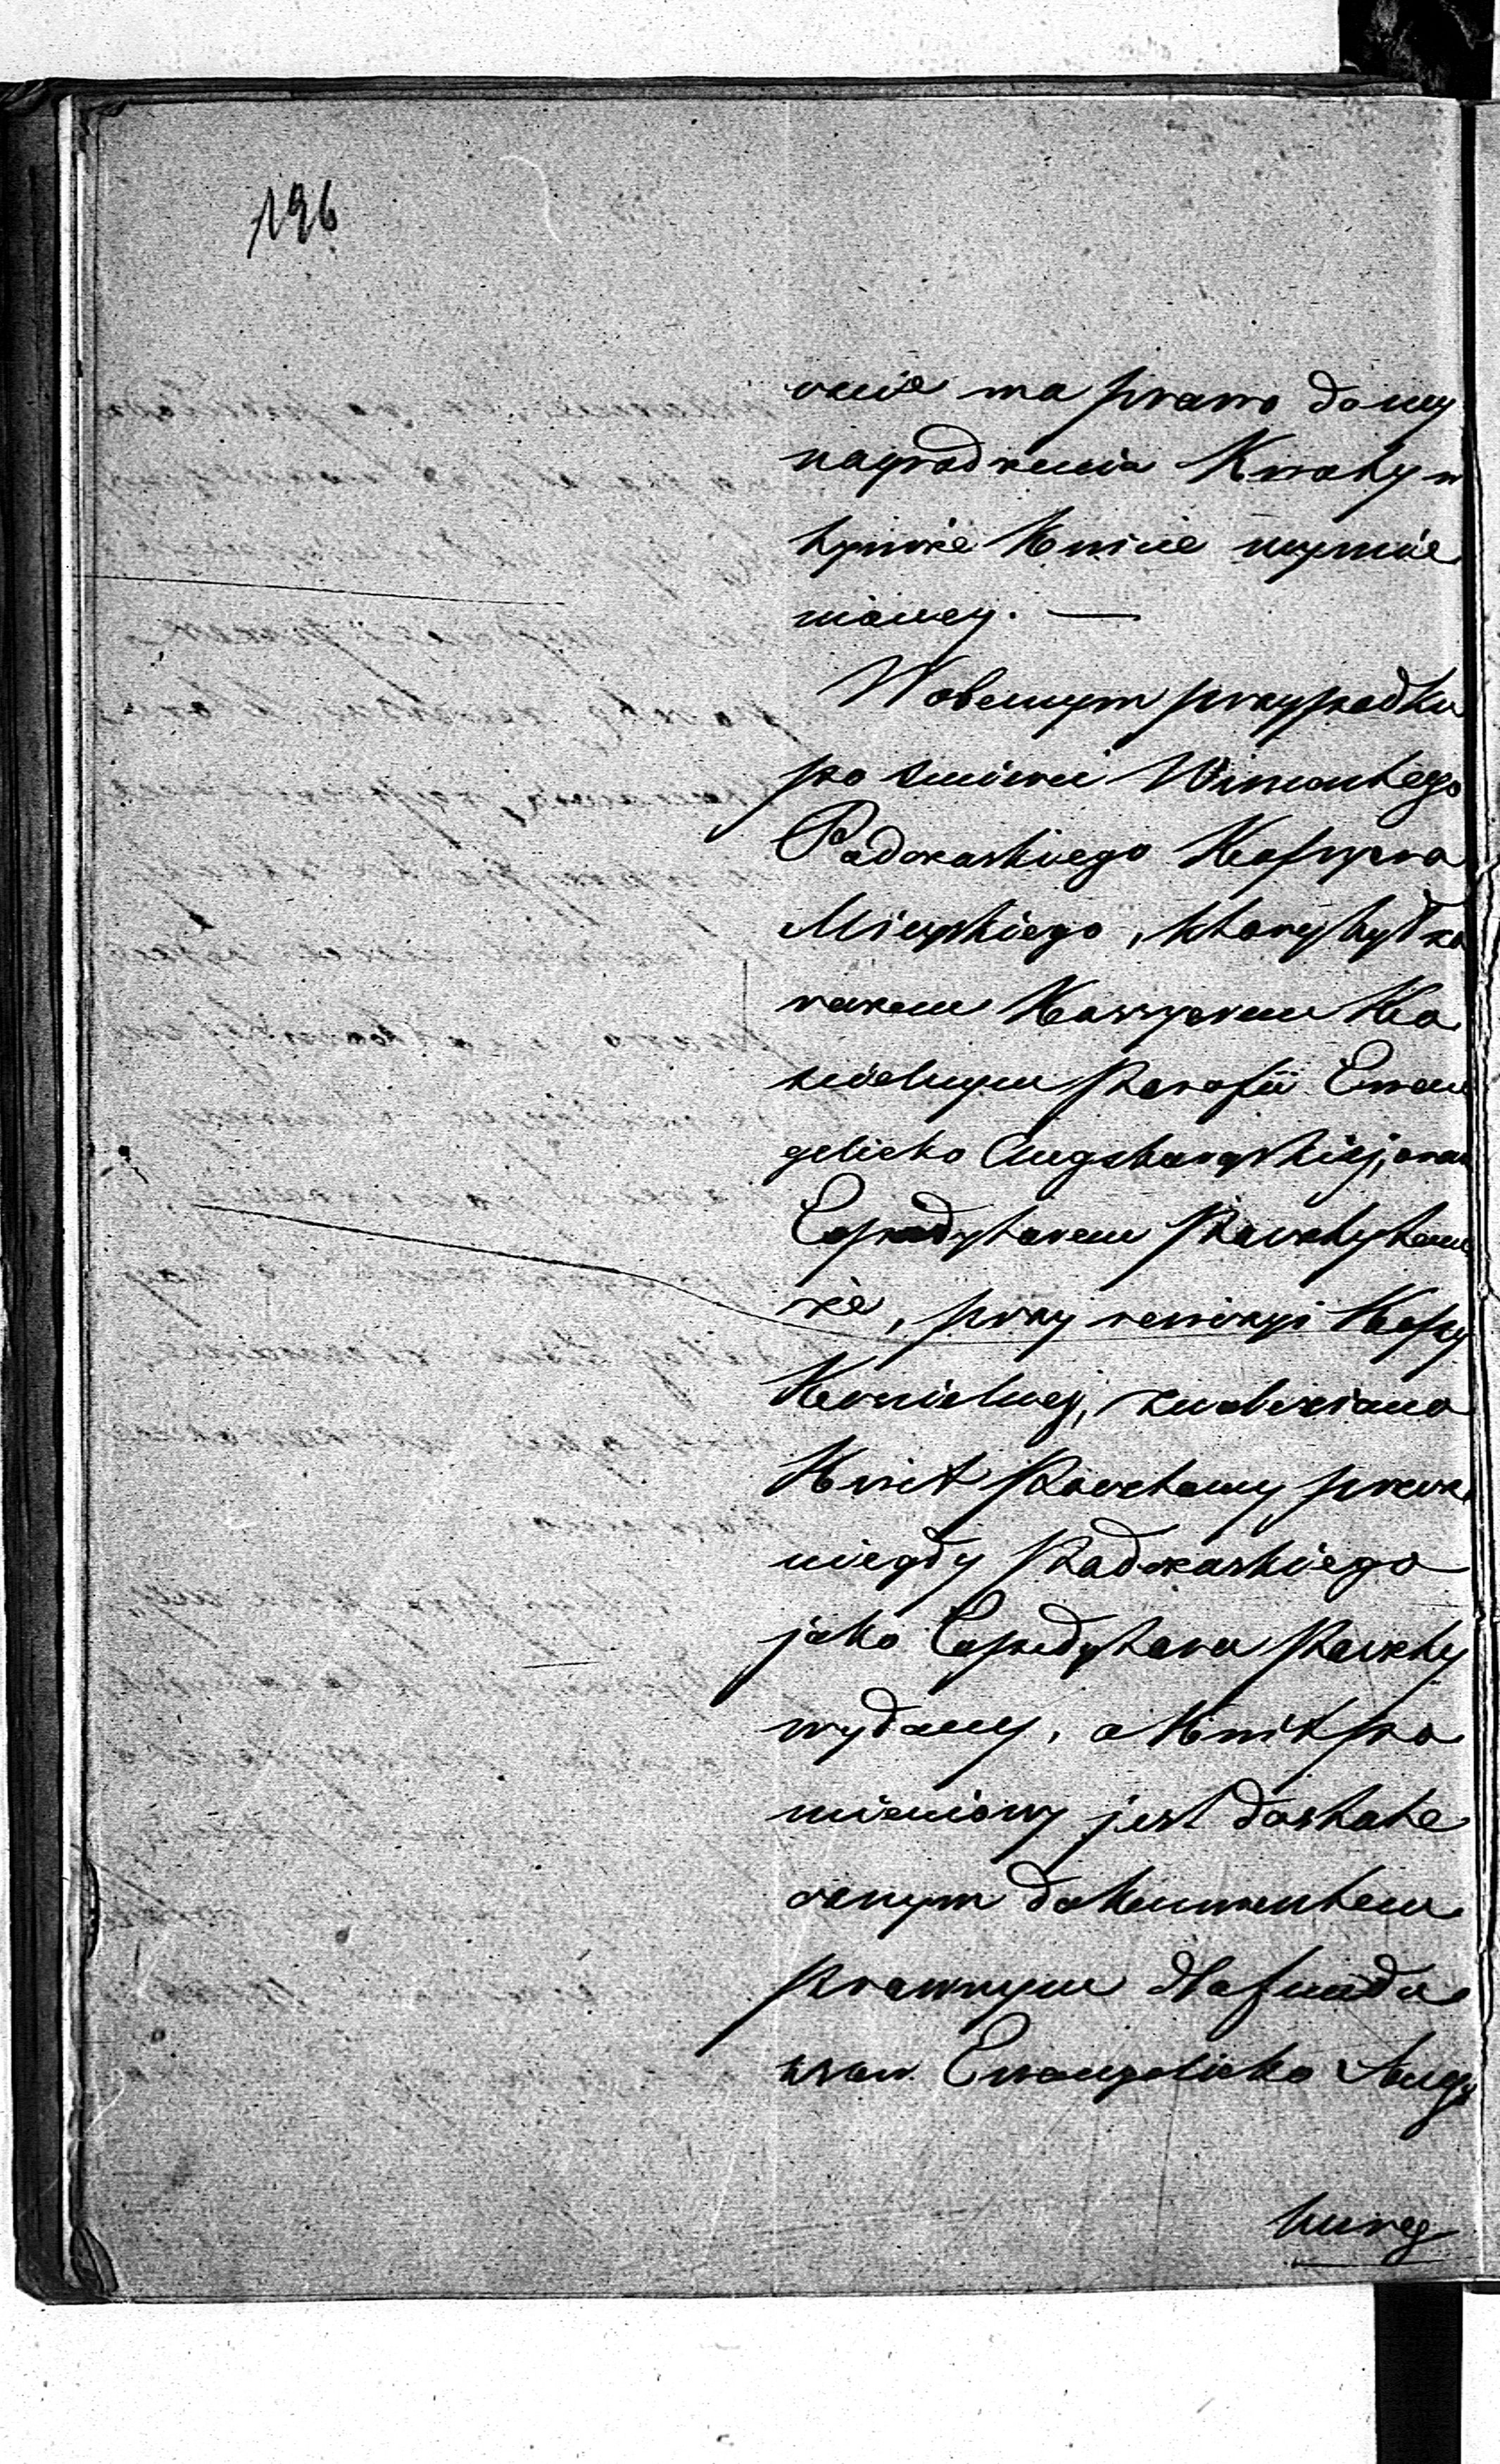 196
cenie ma prawo do wy
nagrodzenia Kwoty w
tymże Kwicie wymie
nioney. —
W obecnym przypadku
po śmierci Wincentego
Padoraskiego Kassyera
Mieyskiego, który był za
razem Kassyerem Ko
scielnym Parafii Ewan
gelicko Augsburgskiej, oraz
Expedytorem Poczty tam
że, przy rewizyi Kassy
Koscielney, znaleziono
Kwit Pocztowy przez
niegdy Padoraskiego
jako Expedytora Poczty
wydany, a Kwit po
mieniony jest dostate
cznym dokumentem
prawnym dla funduszów Ewangelicko Augs
burg